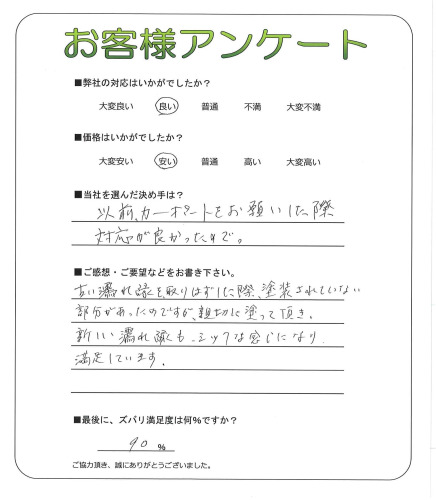 お客様アンケート
■弊社の対応はいかがでしたか？
大変良い 良い 普通 不満 大変不満
■価格はいかがでしたか？
大変安い 安い 普通 高い 大変高い
■当社を選んだ決め手は？
以前、カーポートをお願いした際
対応が良かったので。
■ご感想・ご要望などをお書き下さい。
古い濡れ縁を取りはずした際、塗装されていない
部分があったのですが、親切に塗って頂き。
新しい濡れ縁も、シックな感じになり
満足しています。
■最後に、ズバリ満足度は何％ですか？
90 ％
ご協力頂き、誠にありがとうございました。